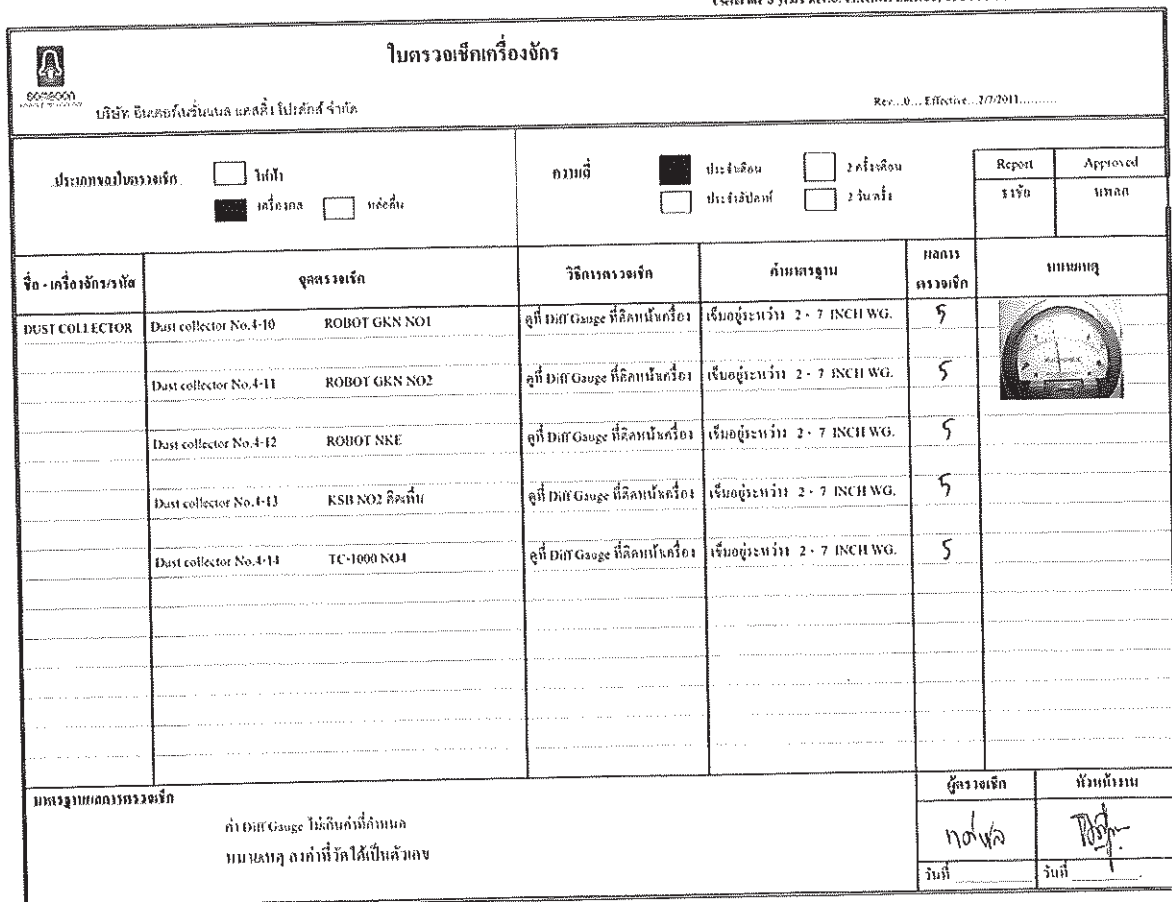 ใบตรวจเช็คเครื่องจักร
SOMBOON
บริษัท อินเตอร์เนชั่นแนล แคสติ้ง โปรดักส์ จำกัด
Rev...0... Effective...2/7/2011..........
ประเภทของใบตรวจเช็ก ไฟฟ้า
เครื่องกล หล่อลื่น
ความถี่ ประจำเดือน 2 ครั้ง/เดือน
ประจำสัปดาห์ 2 วัน/ครั้ง
Report Approved
ธวัช นพดล
ชื่อ - เครื่องจักร/รหัส จุดตรวจเช็ก วิธีการตรวจเช็ก ค่ามาตรฐาน ผลการตรวจเช็ก หมายเหตุ
DUST COLLECTOR Dust collector No.4-10 ROBOT GKN NO1 ดูที่ Diff Gauge ที่ติดหน้าเครื่อง เข็มอยู่ระหว่าง 2 - 7 INCH WG. 5
Dust collector No.4-11 ROBOT GKN NO2 ดูที่ Diff Gauge ที่ติดหน้าเครื่อง เข็มอยู่ระหว่าง 2 - 7 INCH WG. 5
Dust collector No.4-12 ROBOT NKE ดูที่ Diff Gauge ที่ติดหน้าเครื่อง เข็มอยู่ระหว่าง 2 - 7 INCH WG. 5
Dust collector No.4-13 KSB NO2 ดูที่ Diff Gauge ที่ติดหน้าเครื่อง เข็มอยู่ระหว่าง 2 - 7 INCH WG. 5
Dust collector No.4-14 TC-1000 NO4 ดูที่ Diff Gauge ที่ติดหน้าเครื่อง เข็มอยู่ระหว่าง 2 - 7 INCH WG. 5
มาตรฐานผลการตรวจเช็ก
ค่า Diff Gauge ไม่เกินค่าที่กำหนด
หมายเหตุ ลงค่าที่วัดได้เป็นตัวเลข
ผู้ตรวจเช็ก หัวหน้างาน
วันที่ วันที่